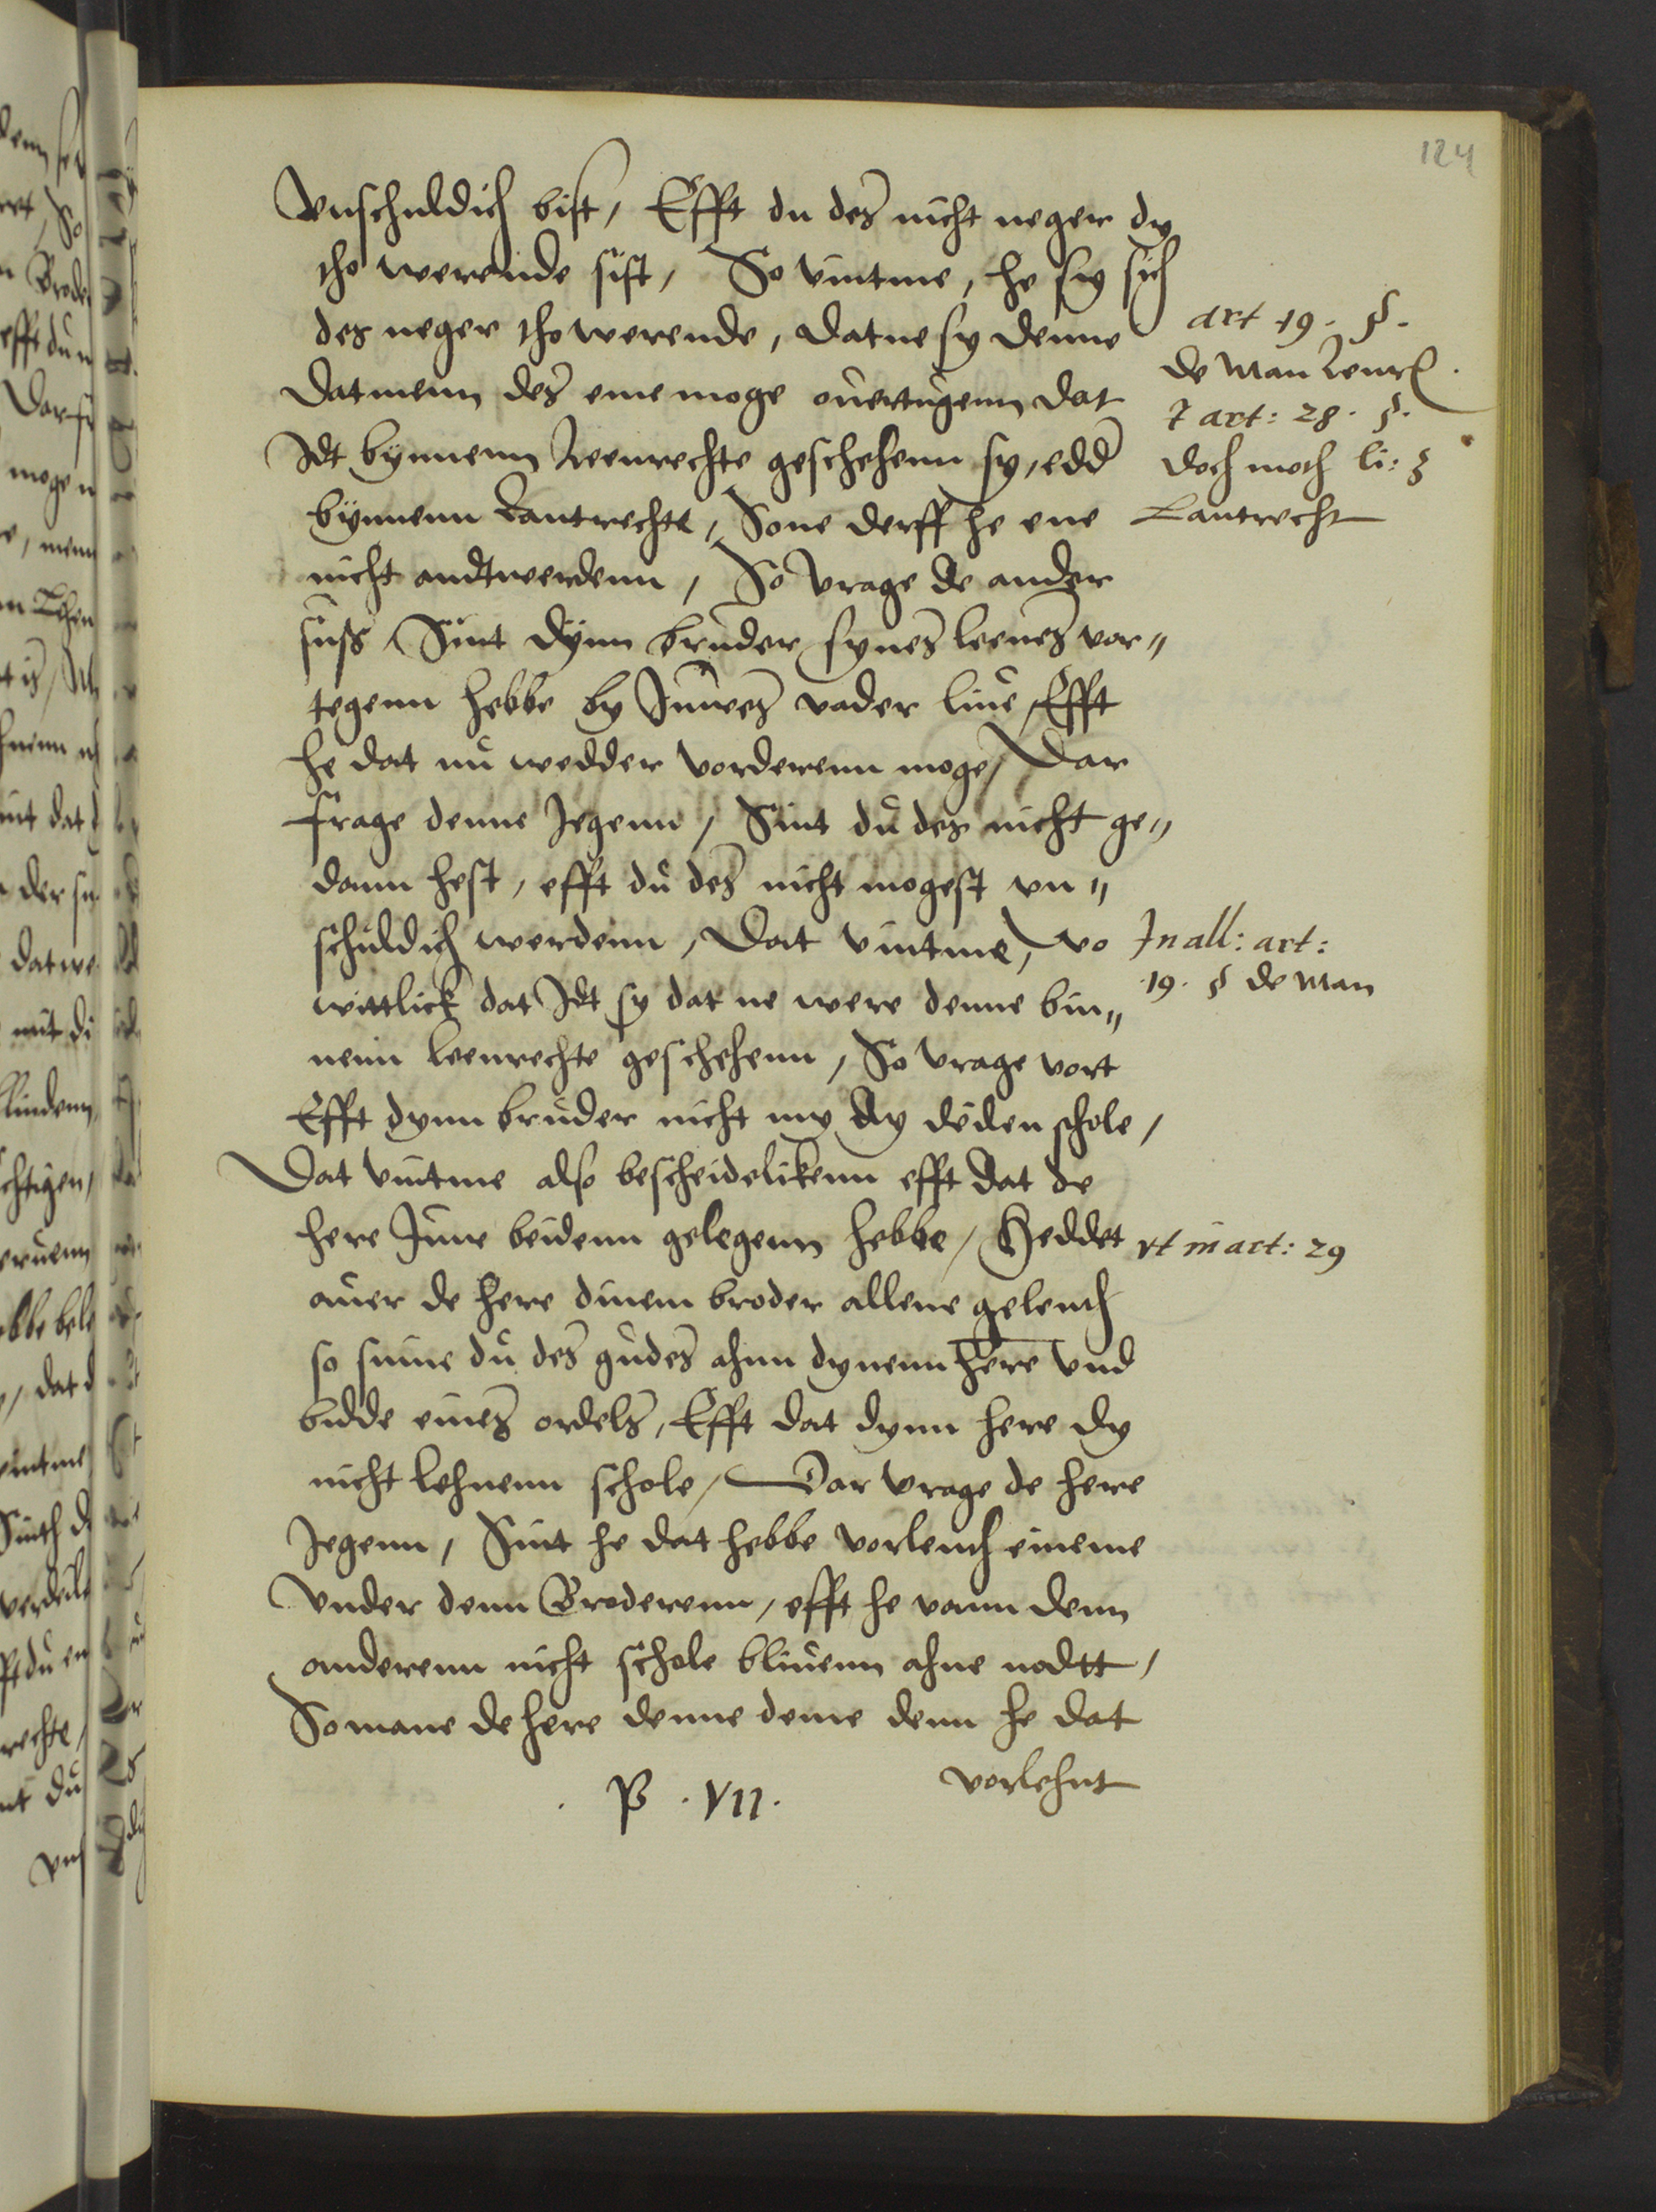 124
Vnschuldich bist, Efft du des nicht neger dy
tho werende sist, So vintme, he sy sich
des neger tho werende, datne sy denne
Datmenn des eme moge ouertugenn dat
Idt bynnenn Leenrechte geschehenn sy, edd
bynnenn Lantrechte, Sone derff he ene
nicht andtwerdenn, So vrage de ander
suss, Sint dynn bruder synes leenes vor„
tegenn hebbe by Juwes vader liue, Efft
he dat nu wedder vorderenn moge, Dar
frage denne Jegenn, Sint du des nicht ge„
dann hest, efft du des nicht mogest vn„
schuldich werdenn, Dat vintme, vo
wittlick dat Idt sy dat ne were denne bin„
nenn leenrechte geschehenn, So vrage vort
Efft dynn bruder nicht my dy deilen schole,
Dat vintme also bescheidelikenn efft dat de
here Juwe beidenn gelegenn hebbe, Heddet
auer de here dinem broder allene gelench
so sinne du des gudes ahnn dynenn here vnd
bidde eines ordels, Efft dat dynn here dy
nicht lehnenn schole, Dar vrage de here
Jegenn, Sint he dat hebbe vorlench eineme
Vnder denn Broderenn, efft he vann denn
anderenn nicht schole bliuenn ahne nodtt,
So mane de here denne deme denn he dat
vorlehnt
P . VII.
art 19. §.
de Man Lenr
7 art: 28. §.
doch moch li: 3
Lantrecht
In all: art:
19. § de Man
vt in art: 29